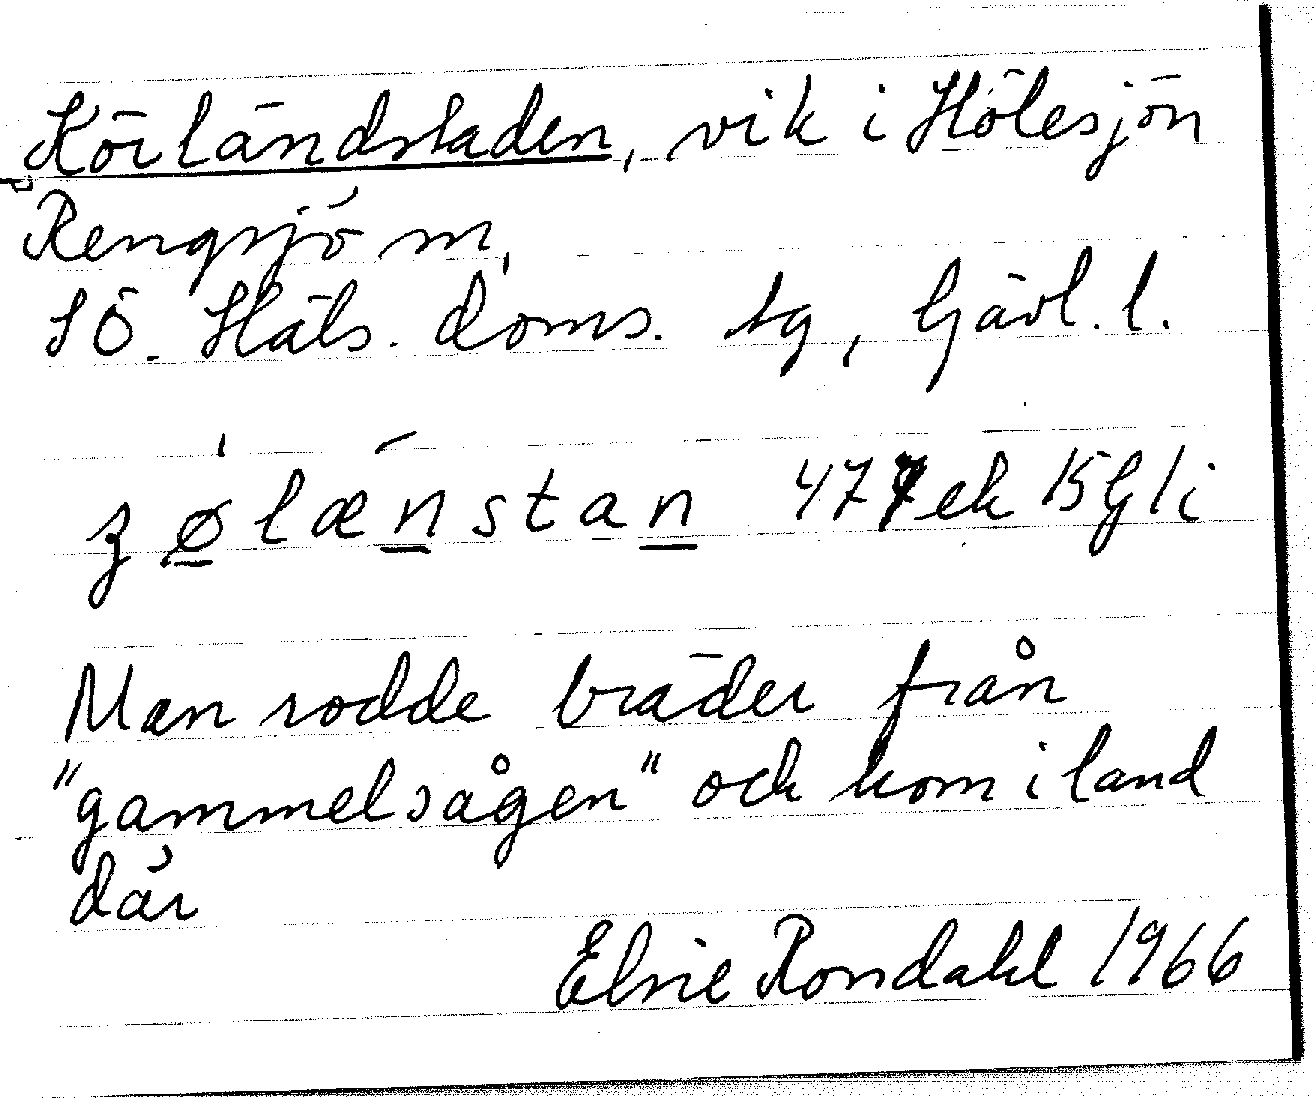 Körländstaden, vik i Hölesjön
Rengsjö sn,
Sö. Häls. doms. tg, Gävl. l.
ʒølænstan 477 ek 15 G l i
Man rodde bräder från
"gammelsågen" och kom i land
där
Elsie Rondahl 1966